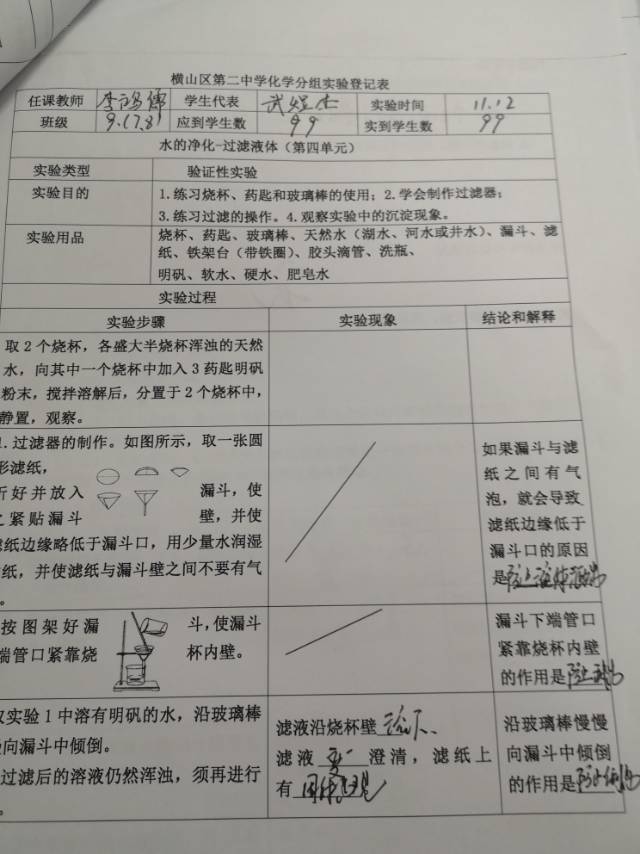 横山区第二中学化学分组实验登记表
任课教师 学生代表 实验时间 11.12
班级 9.(7.8) 应到学生数 99 实到学生数 99
水的净化-过滤液体（第四单元）
实验类型 验证性实验
实验目的 1.练习烧杯、药匙和玻璃棒的使用；2.学会制作过滤器；
3.练习过滤的操作。4.观察实验中的沉淀现象。
实验用品 烧杯、药匙、玻璃棒、天然水（湖水、河水或井水）、漏斗、滤
纸、铁架台（带铁圈）、胶头滴管、洗瓶、
明矾、软水、硬水、肥皂水
实验过程
实验步骤 实验现象 结论和解释
取2个烧杯，各盛大半烧杯浑浊的天然
水，向其中一个烧杯中加入3药匙明矾
粉末，搅拌溶解后，分置于2个烧杯中，
静置，观察。
1.过滤器的制作。如图所示，取一张圆
形滤纸，
折好并放入 漏斗，使
之紧贴漏斗 壁，并使
滤纸边缘略低于漏斗口，用少量水润湿
纸，并使滤纸与漏斗壁之间不要有气
。
如果漏斗与滤
纸之间有气
泡，就会导致
滤纸边缘低于
漏斗口的原因
是
按图架好漏 斗，使漏斗
端管口紧靠烧 杯内壁。
漏斗下端管口
紧靠烧杯内壁
的作用是
取实验1中溶有明矾的水，沿玻璃棒
向漏斗中倾倒。
过滤后的溶液仍然浑浊，须再进行
。
滤液沿烧杯壁
滤液 变 澄清，滤纸上
有
沿玻璃棒慢慢
向漏斗中倾倒
的作用是